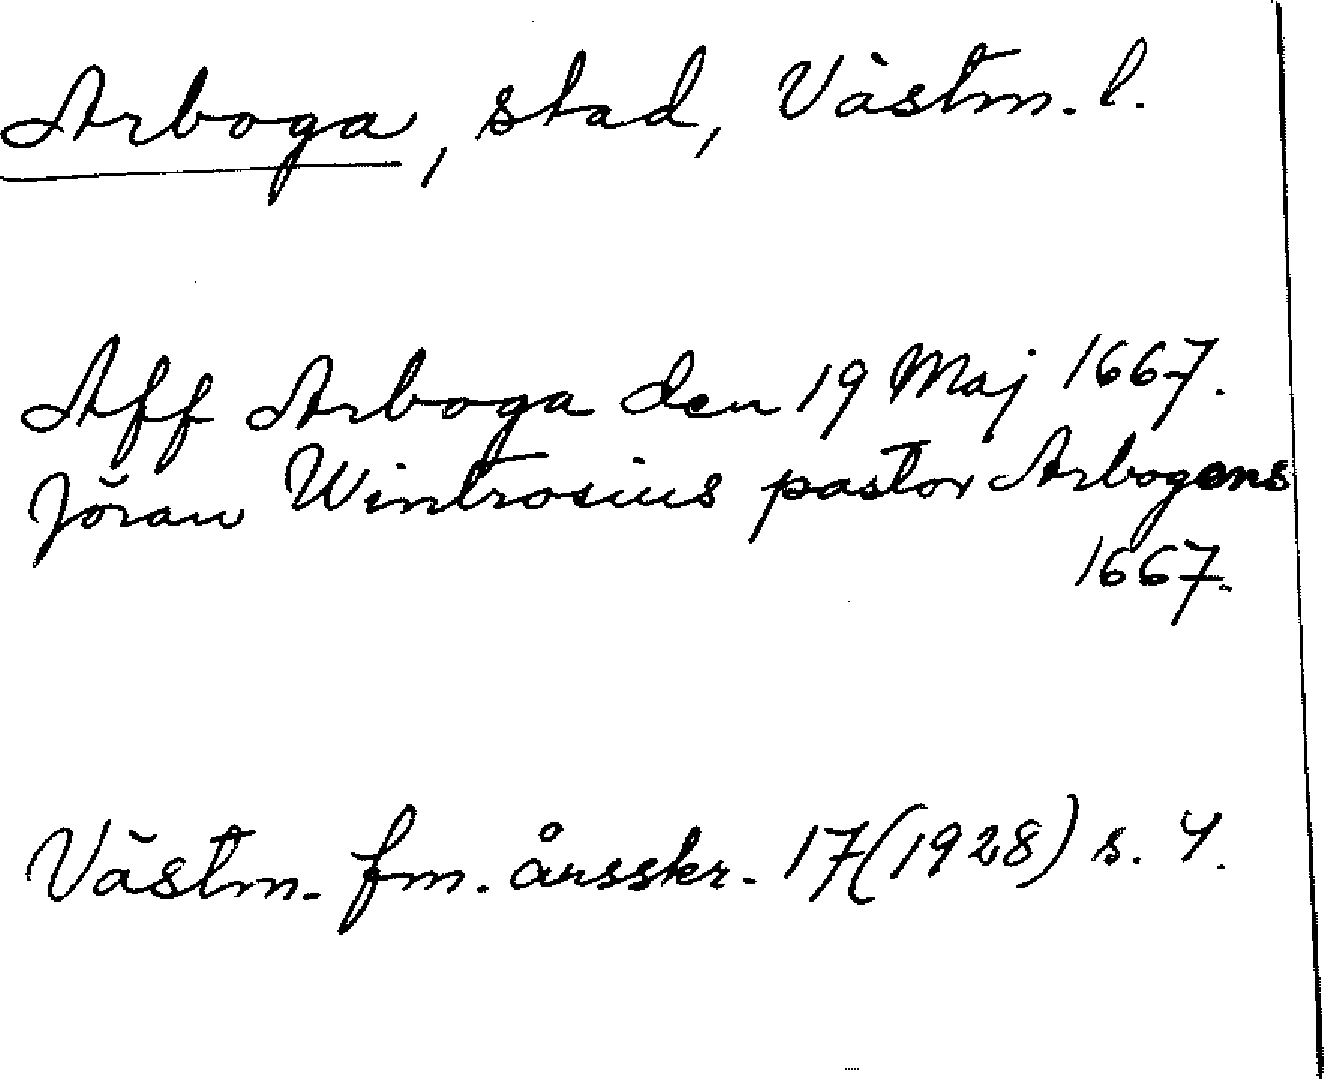 Arboga, stad, Västm. l.
Aff Arboga den 19 Maj 1667.
Jöran Wintrosius pastor Arbogens
1667.
Västm. fm. årsskr. 17(1928) s. 4.